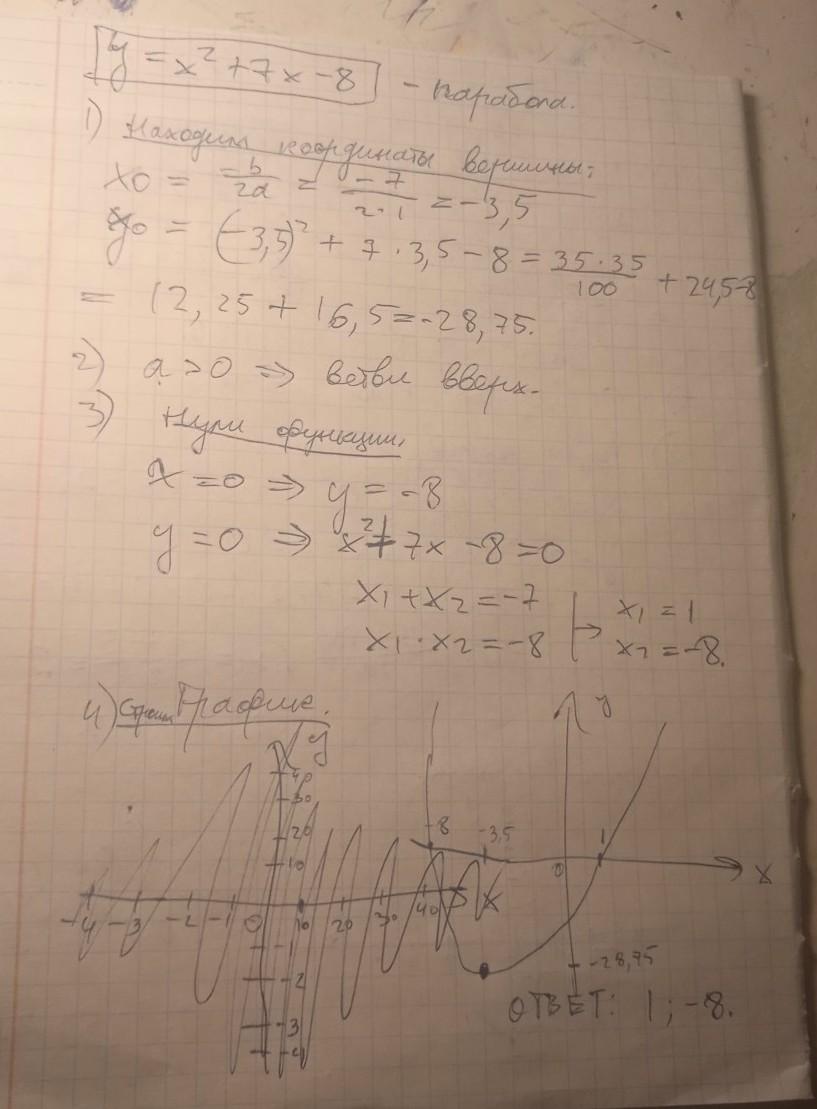 y = x² + 7x - 8 - парабола.
1) Находим координаты вершины:
x0 = -b/2a = -7/2·1 = -3,5
y0 = (-3,5)² + 7 · 3,5 - 8 = 35·35/100 + 24,5-8
= 12,25 + 16,5 = -28,75.
2) a > 0 ⇒ ветви вверх.
3) Нули функции.
x = 0 ⇒ y = -8
y = 0 ⇒ x² + 7x - 8 = 0
x₁ + x₂ = -7
x₁ · x₂ = -8
→ x₁ = 1
x₂ = -8.
4) Строим График.
y
40
30
20
10
-4 -3 -2 -1 0 10 20 30 40 X
-1
-2
-3
-4
y
-8 -3,5 0 1 x
-28,75
ОТВЕТ: 1; -8.